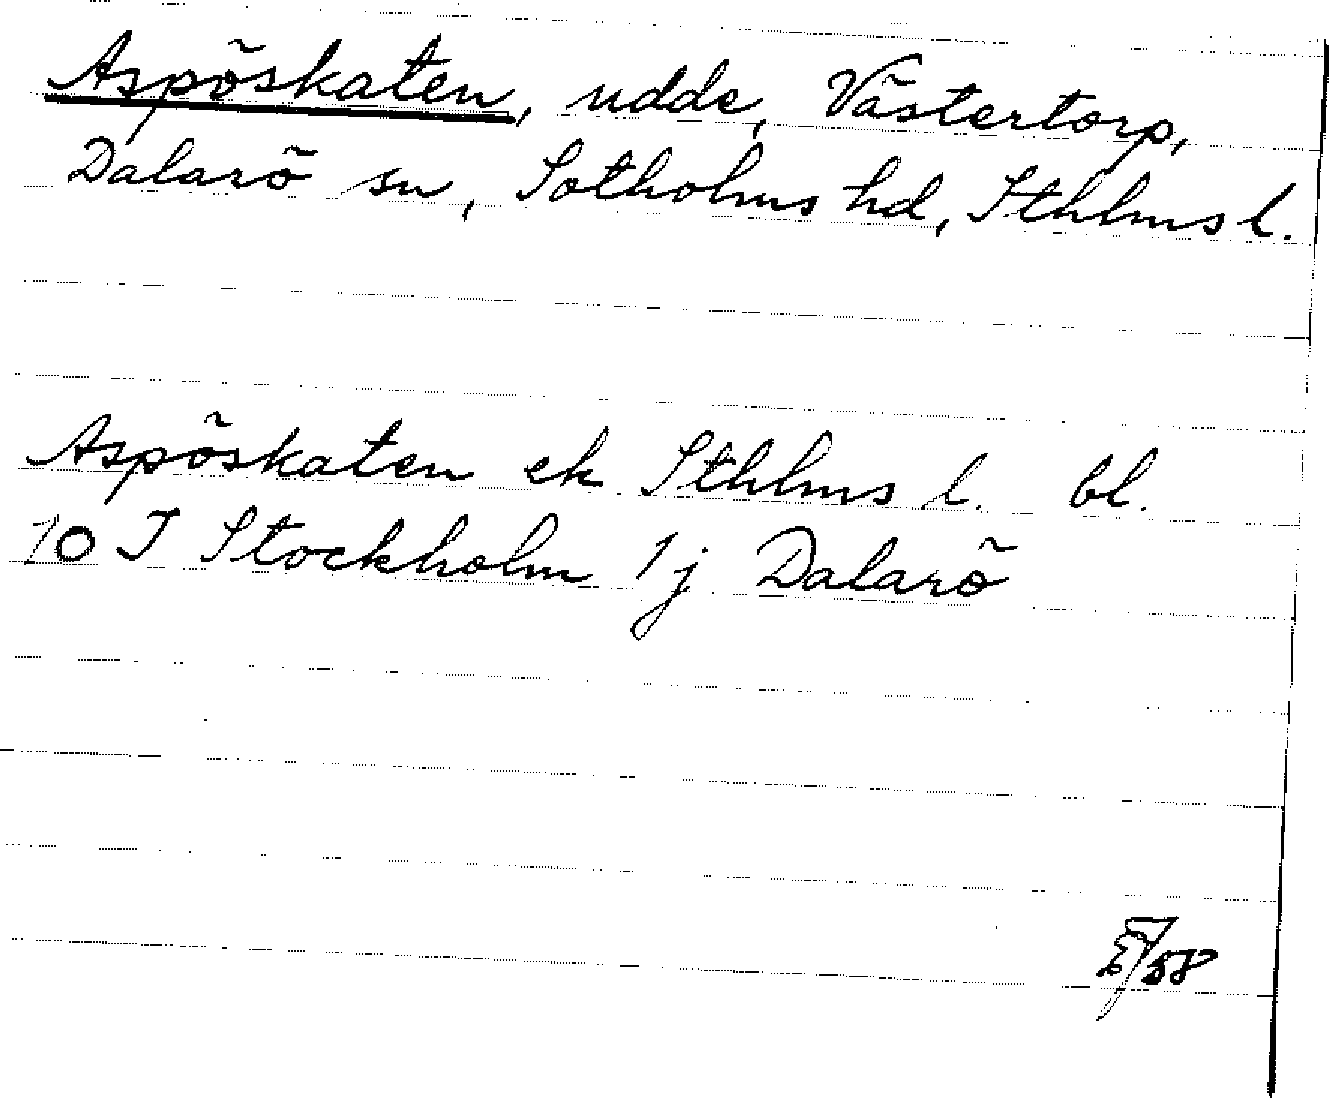 Aspöskaten, udde, Västertorp,
Dalarö sn, Sotholms hd, Sthlms l.
Aspöskaten ek Sthlms l. bl.
10 J Stockholm 1j Dalarö